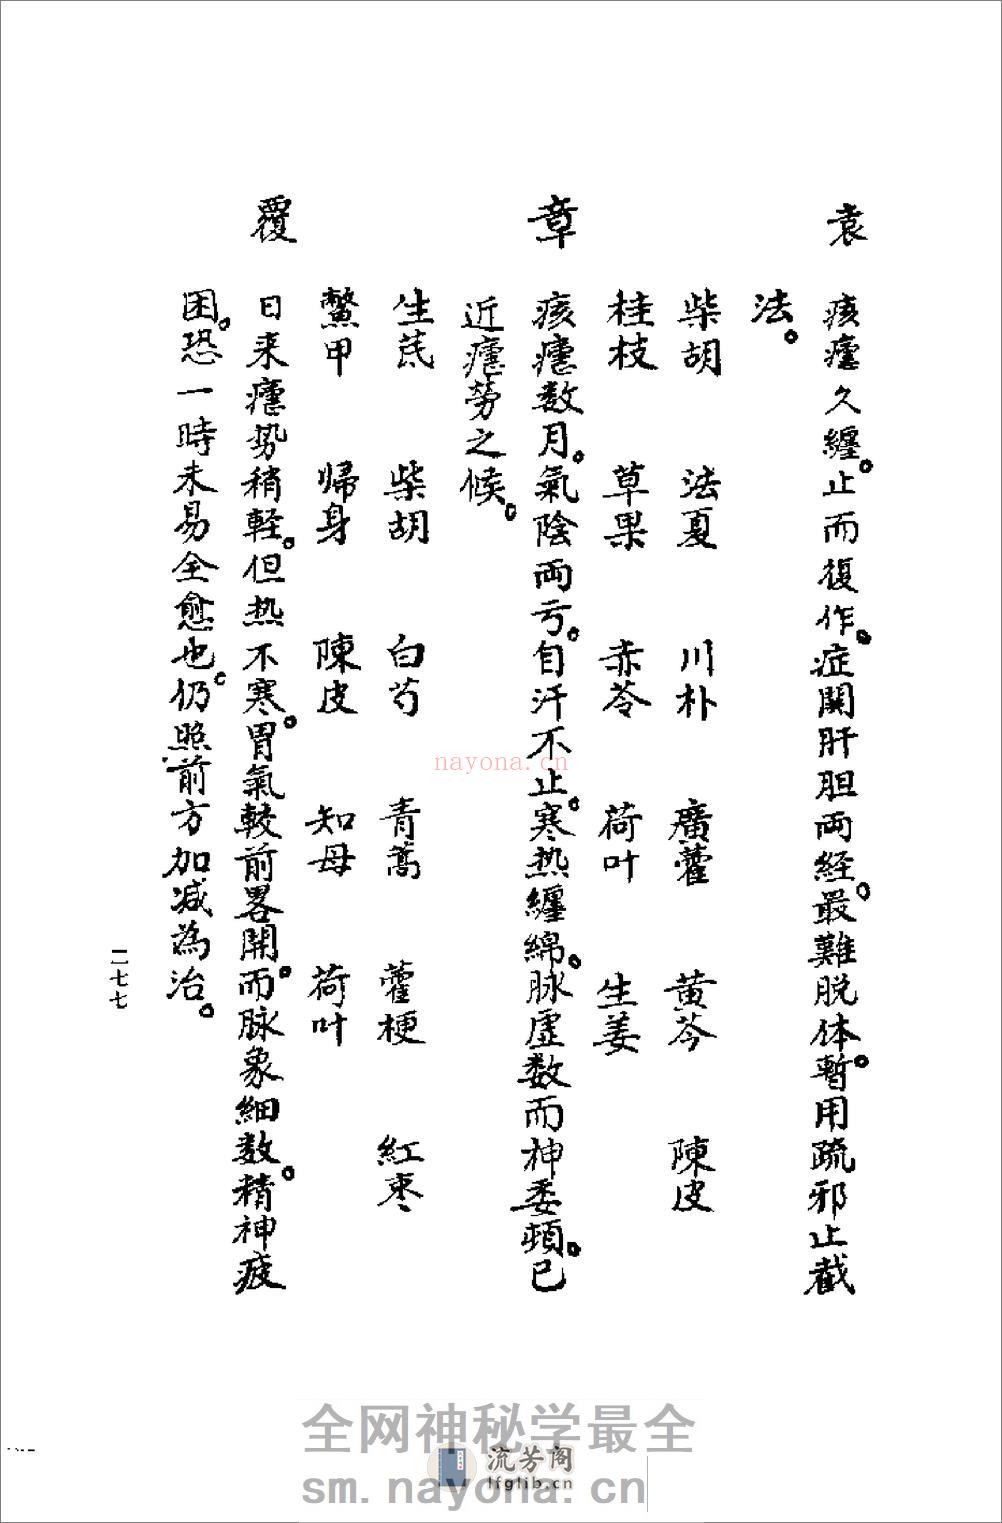 袁
痎瘧久纏。止而復作。症関肝胆両経。最難脱体。暫用疏邪止截
法。
柴胡 法夏 川朴 廣藿 黄芩 陳皮
桂枝 草果 赤苓 荷叶 生姜
章
痎瘧数月。氣陰両亏。自汗不止。寒热纏綿。脉虚数而神委頓。已
近瘧勞之候。
生芪 柴胡 白芍 青蒿 藿梗 紅枣
鱉甲 归身 陳皮 知母 荷叶
覆
日来瘧势稍軽。但热不寒。胃氣較前畧開。而脉象細数。精神疲
困。恐一時未易全愈也。仍照前方加减為治。
二七七
nayona.cn
全网神秘学最全
流芳阁
lfglib.cn
sm.nayona.cn